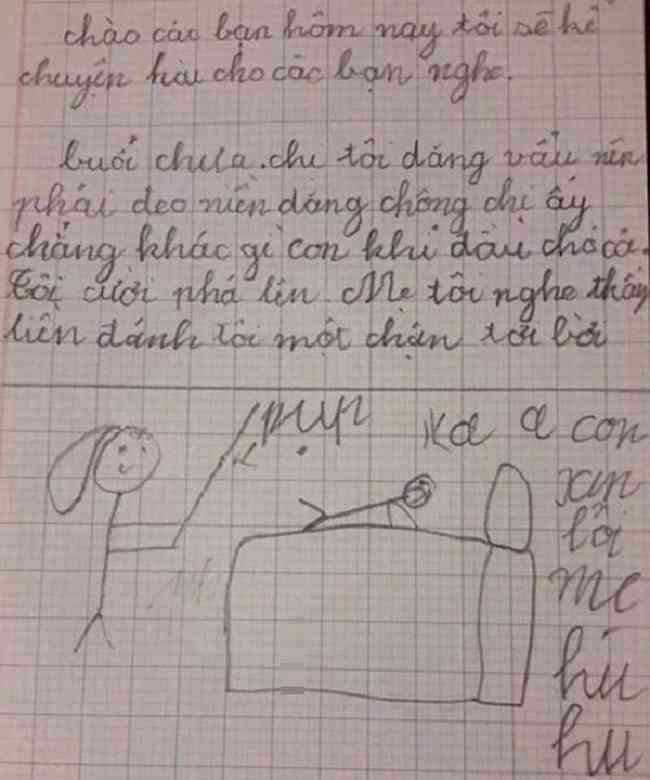 chào các bạn hôm nay tôi sẽ kể
chuyện hài cho các bạn nghe.
buổi chưa. chị tôi dăng vẩu nên
phải deo niền dăng chông chị ấy
chẳng khác gì con khỉ đầu chó cả.
Tôi cười phá lên Mẹ tôi nghe thấy
liền dánh tôi một chận tơi bời
pụp
Ka a con
xin
lỗi
mẹ
hú
hu